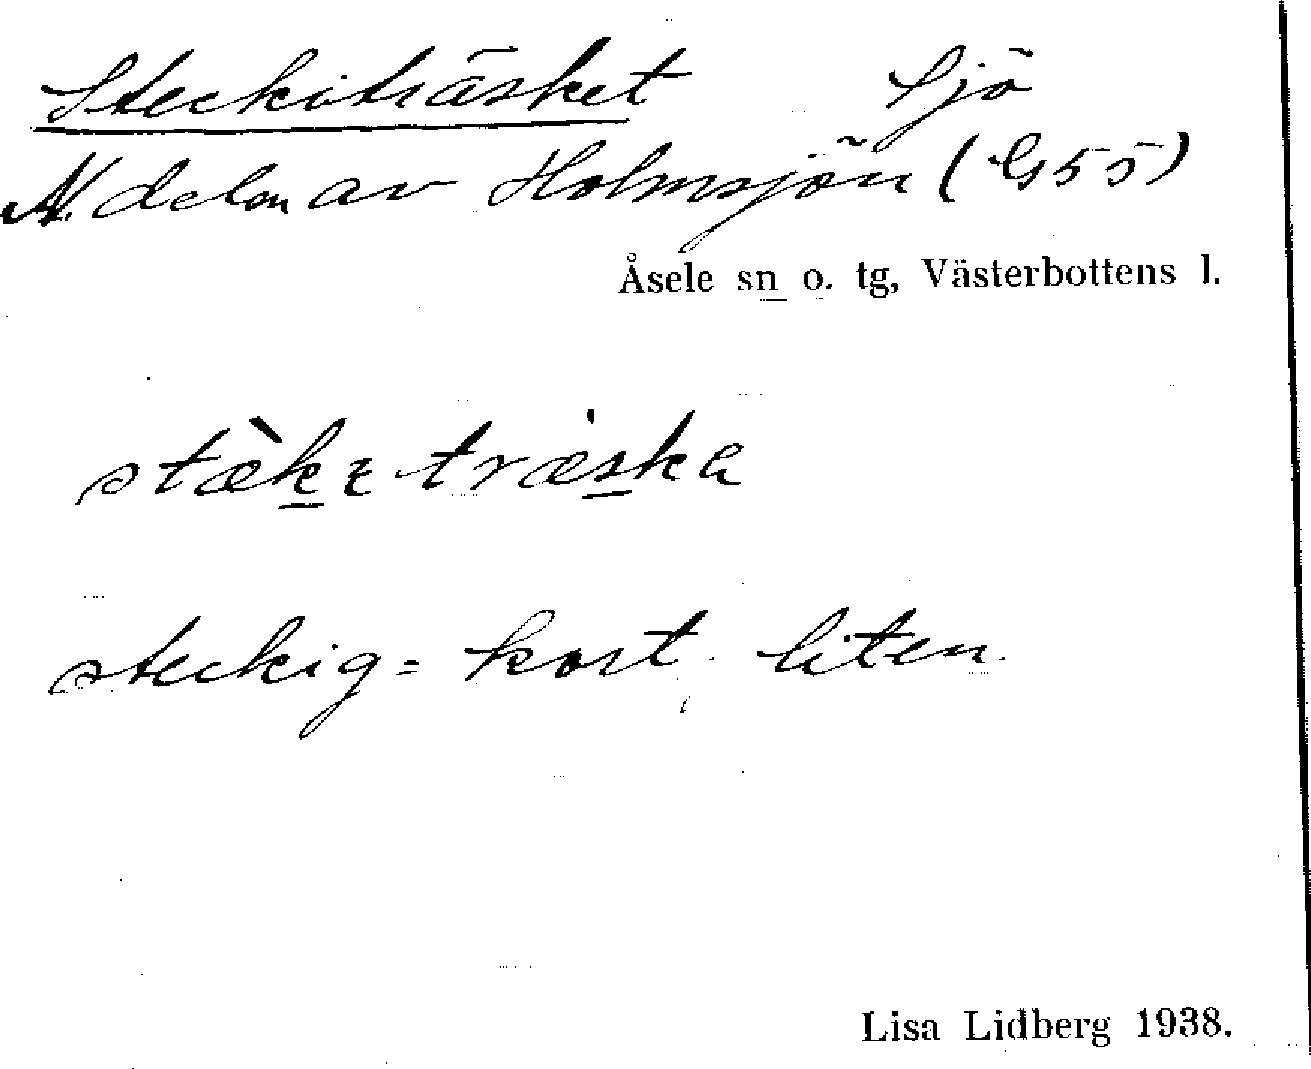 Steckiträsket Sjö
N. delen av Holmsjön (G55)
Åsele sn o. tg, Västerbottens l.
stæ̀kɩtræska
steckig = kort, liten.
Lisa Lidberg 1938.